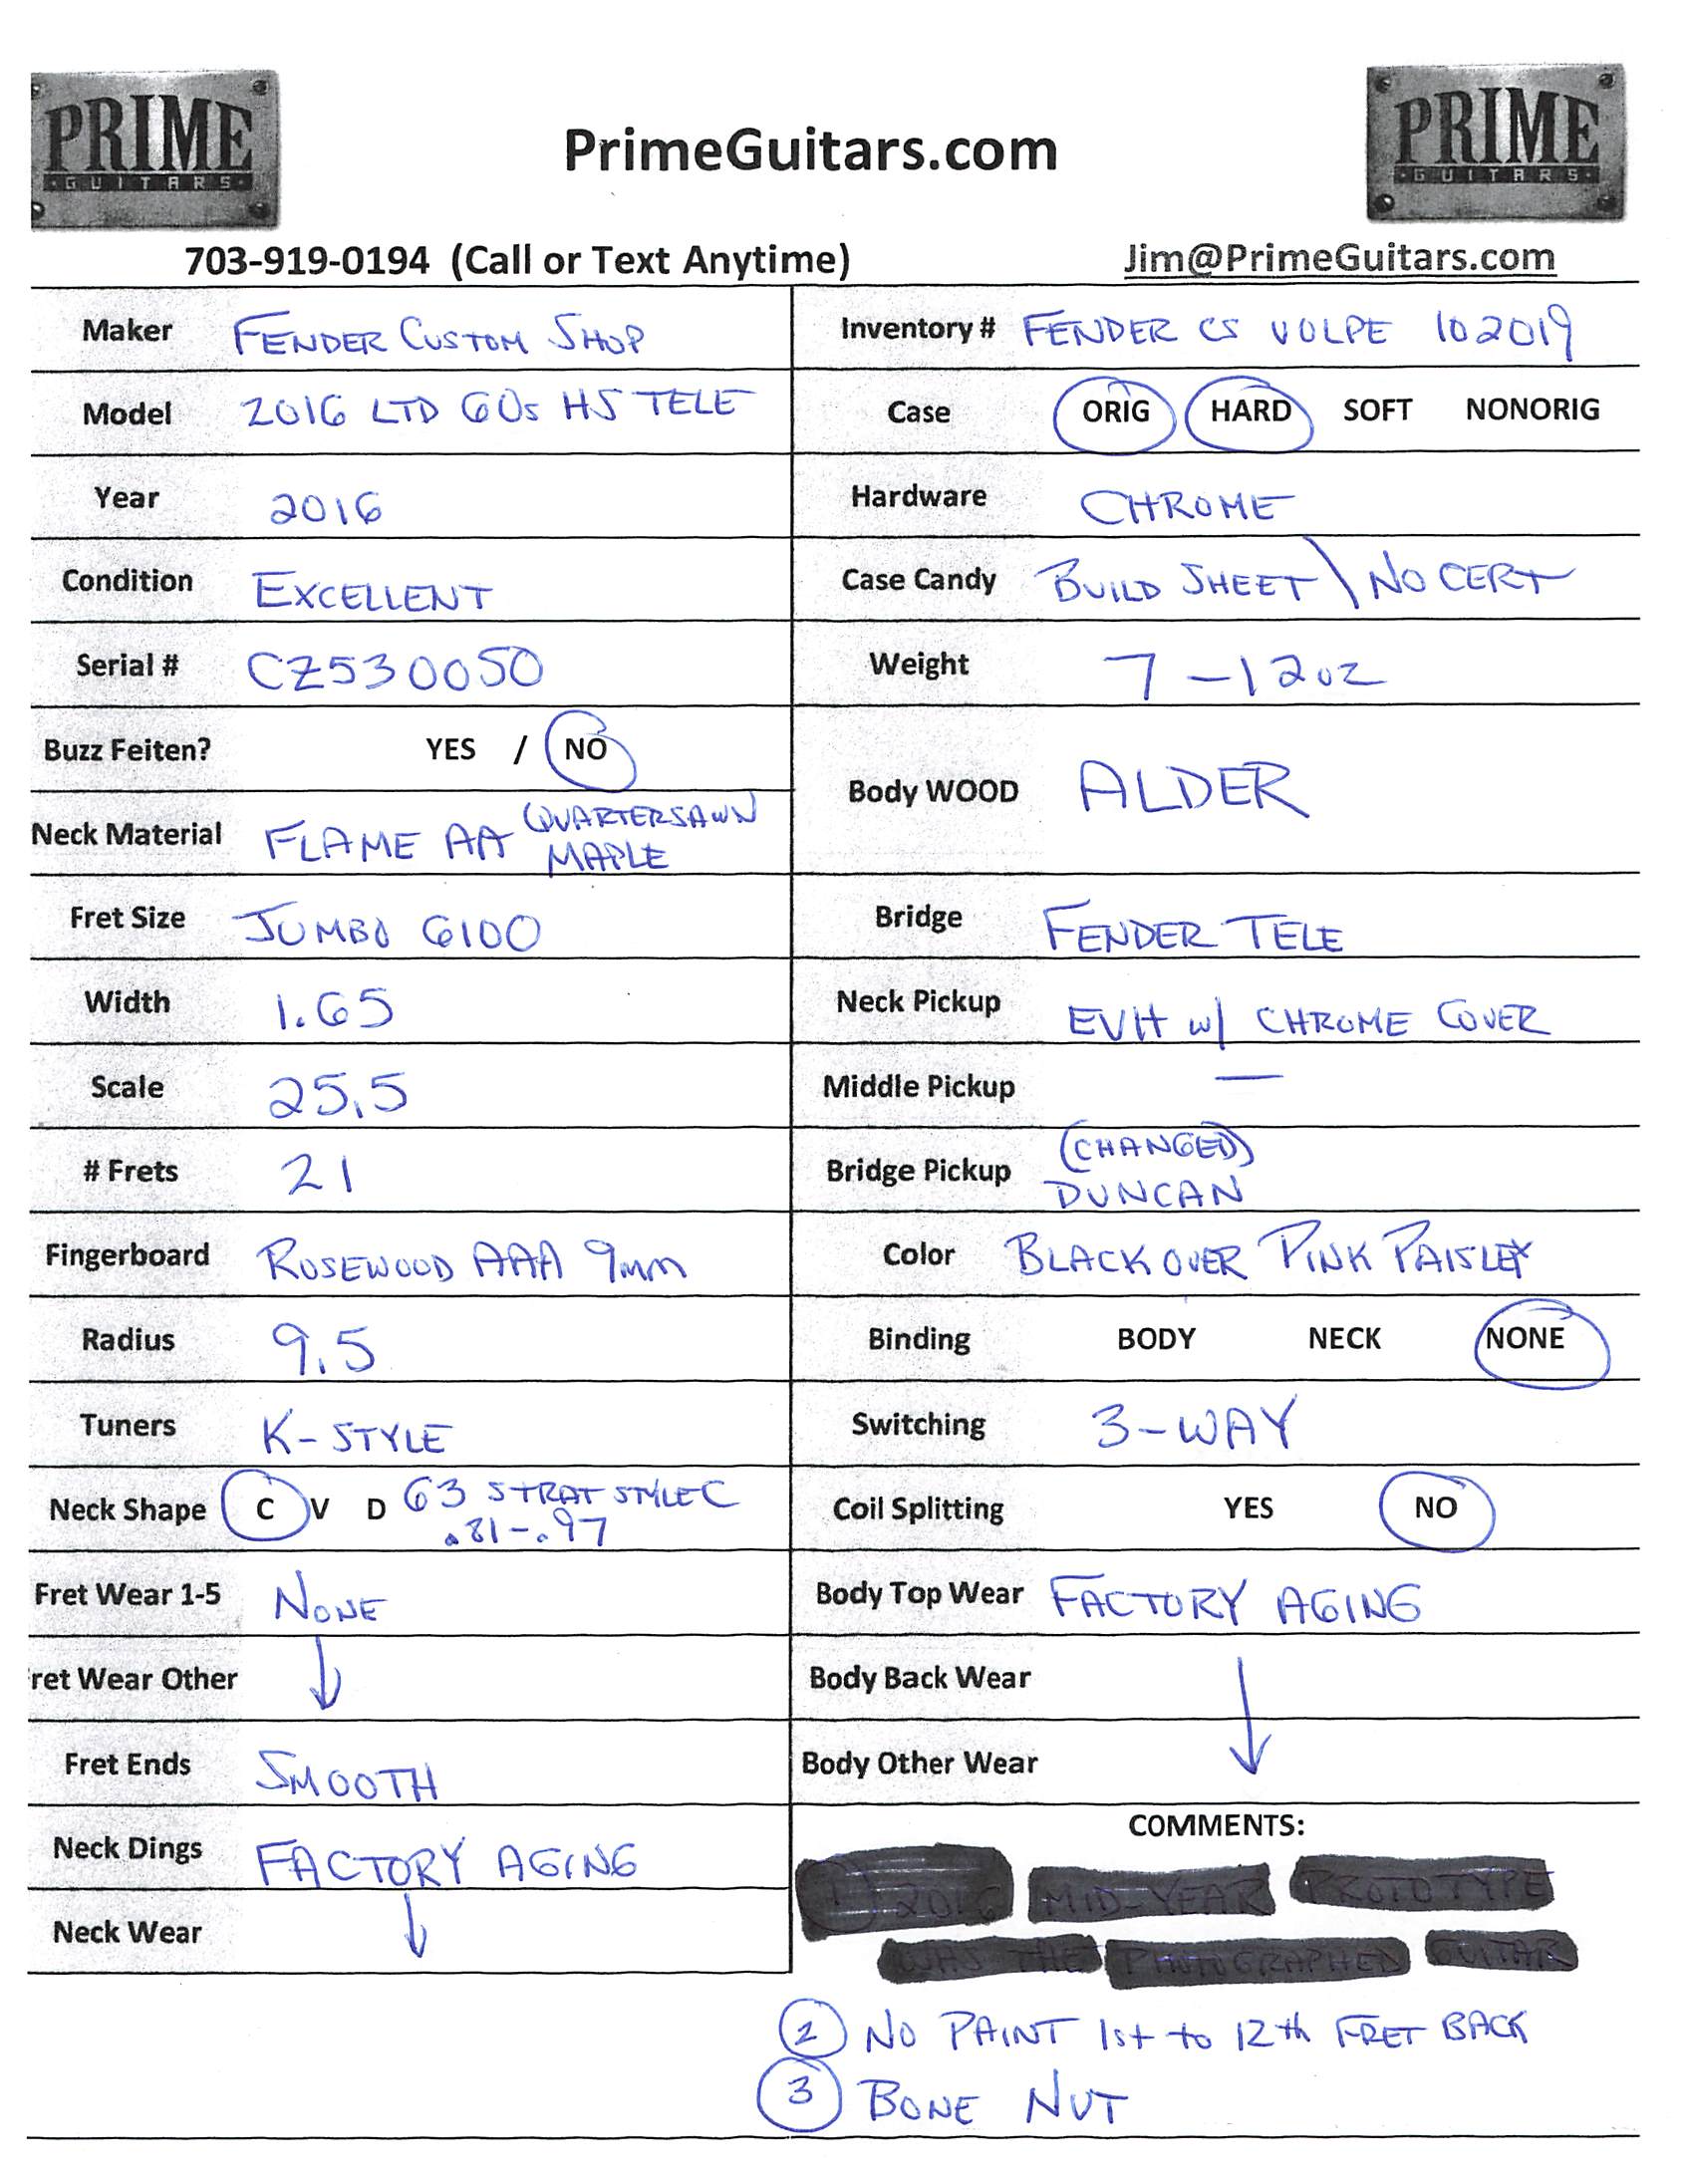 PRIME
GUITARS
PrimeGuitars.com
PRIME
GUITARS
703-919-0194 (Call or Text Anytime)
Jim@PrimeGuitars.com
Maker FENDER CUSTOM SHOP
Inventory # FENDER CS VOLPE 102019
Model 2016 LTD 60s HS TELE
Case ORIG HARD SOFT NONORIG
Year 2016
Hardware CHROME
Condition EXCELLENT
Case Candy BUILD SHEET \ NO CERT
Serial # CZ530050
Weight 7 - 12oz
Buzz Feiten? YES / NO
Body WOOD ALDER
Neck Material FLAME AA QUARTERSAWN
MAPLE
Fret Size JUMBO 6100
Bridge FENDER TELE
Width 1.65
Neck Pickup EVH w/ CHROME COVER
Scale 25.5
Middle Pickup —
# Frets 21
Bridge Pickup (CHANGED)
DUNCAN
Fingerboard ROSEWOOD AAA 9mm
Color BLACK OVER PINK PAISLEY
Radius 9.5
Binding BODY NECK NONE
Tuners K-STYLE
Switching 3-WAY
Neck Shape C V D 63 STRAT STYLE C
.81-.97
Coil Splitting YES NO
Fret Wear 1-5 NONE
Body Top Wear FACTORY AGING
ret Wear Other
Body Back Wear
Fret Ends SMOOTH
Body Other Wear
Neck Dings FACTORY AGING
COMMENTS:
1 2016 MID-YEAR PROTOTYPE
WAS THE PHOTOGRAPHED GUITAR
Neck Wear
2 NO PAINT 1st to 12th FRET BACK
3 BONE NUT